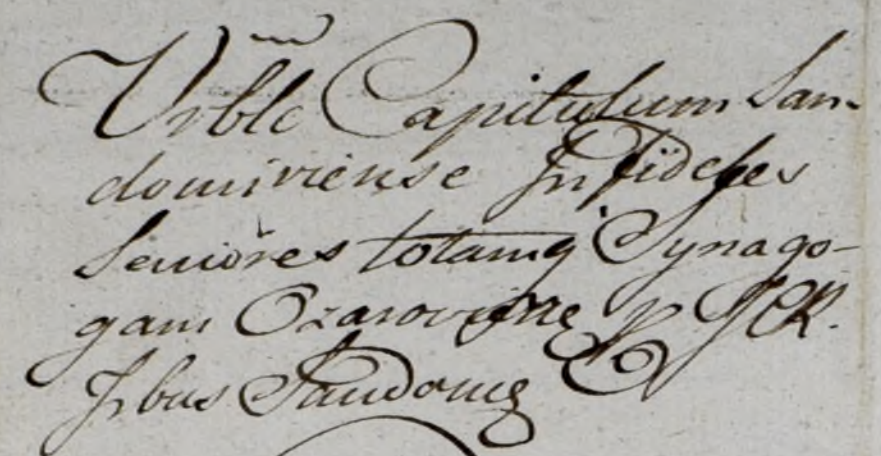 Vrble Capitulum San-
domiriense Infideles
Seniores totamq Synago-
gam Ozarov
Sando